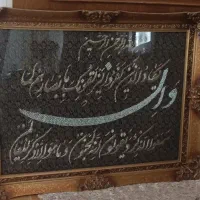 بسم الله الرحمن الرحیم
وان
یکاد الذین کفروا لیزلقونک بابصارهم
لما سمعوا الذکر و یقولون انه لمجنون و ما هو الا ذکر للعالمین